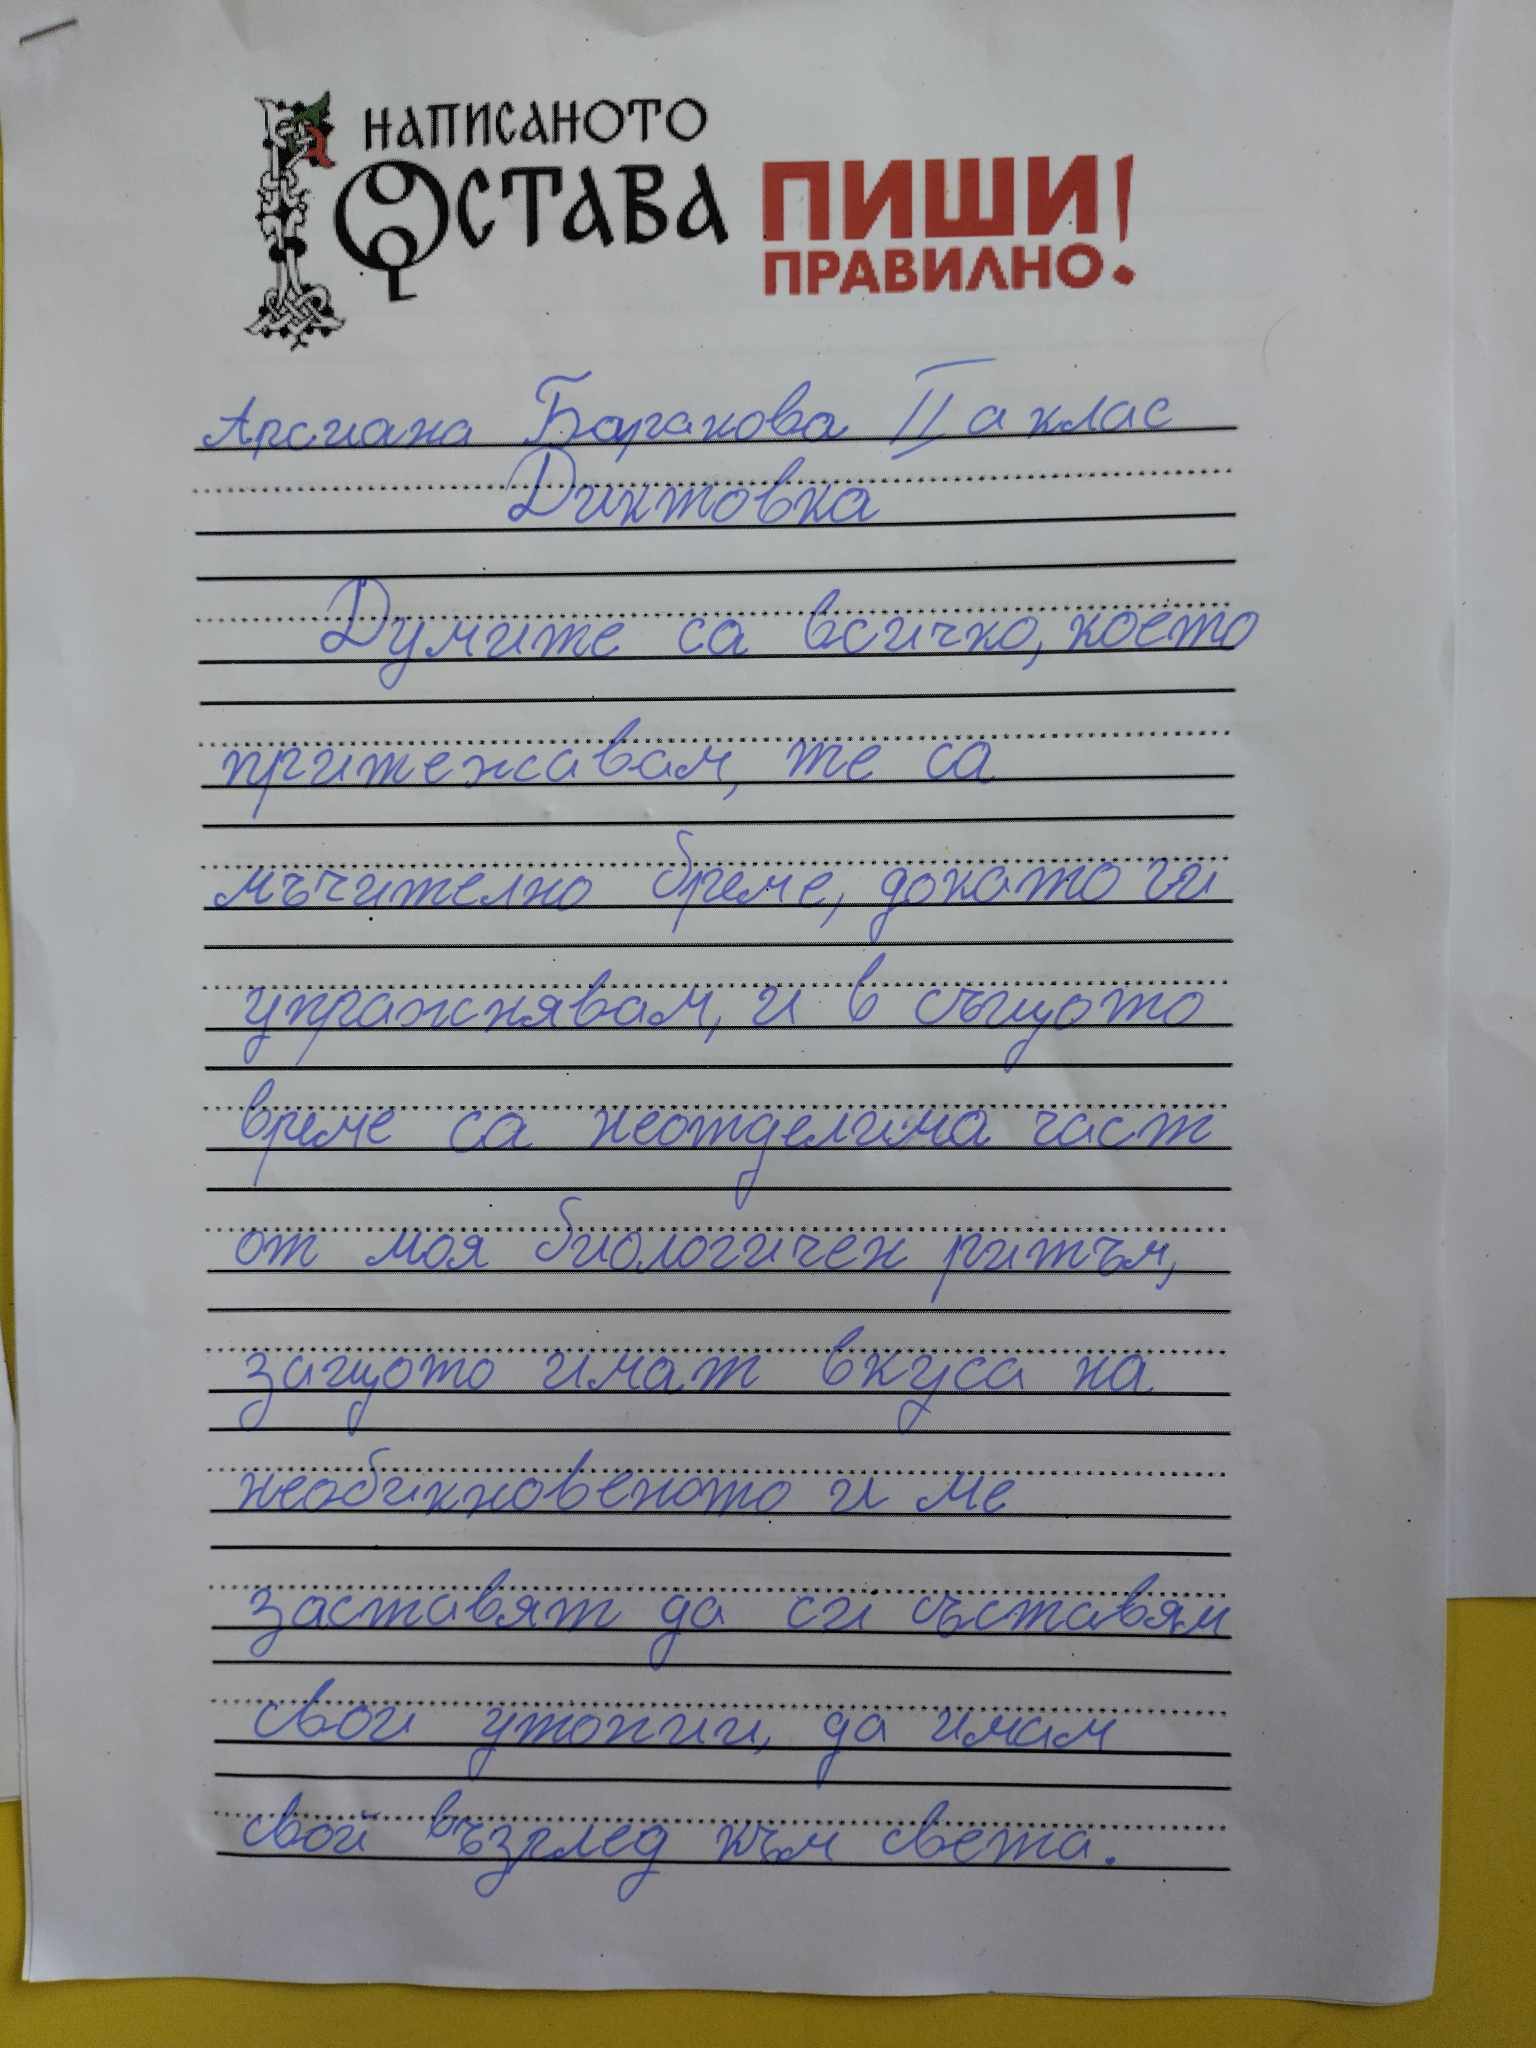 НАПИСАНОТО
ОСТАВА
ПИШИ
ПРАВИЛНО!
Арсиана Баракова II а клас
Диктовка
Думите са всичко, което
притежавам, те са
мъчително бреме, докато ги
упражнявам, и в същото
време са неотделима част
от моя биологичен ритъм,
защото имат вкуса на
необикновеното и ме
заставят да си съставям
свои утопии, да имам
свой възглед към света.